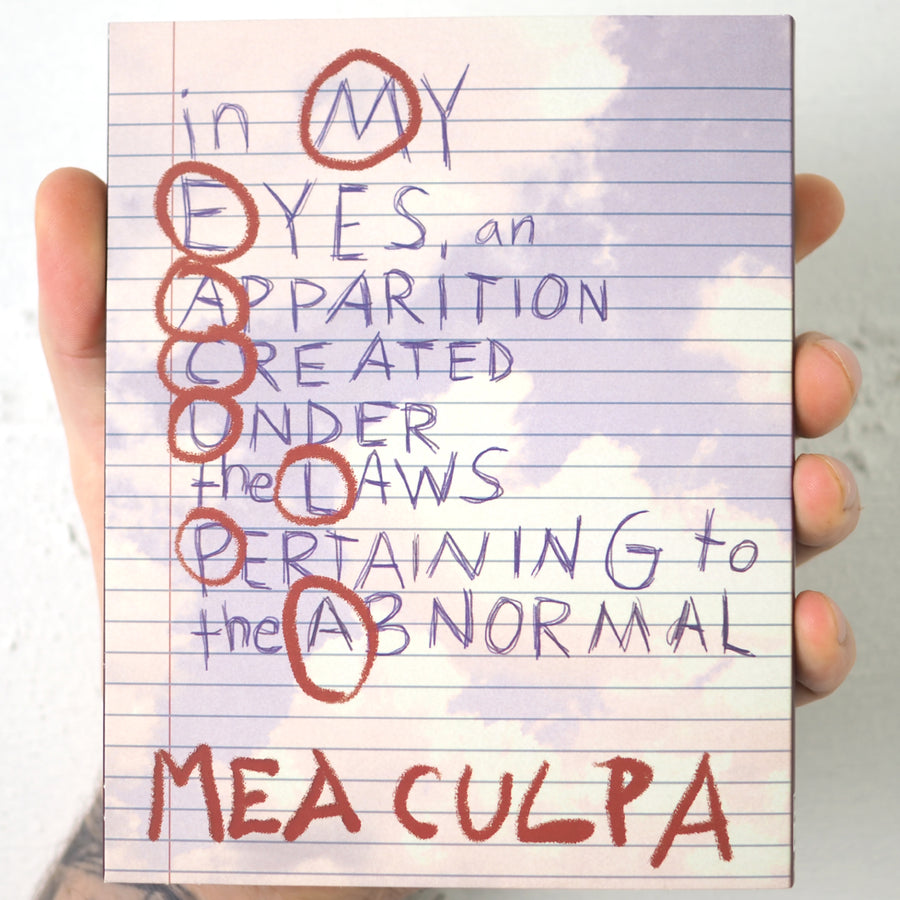 in MY
EYES, an
APPARITION
CREATED
UNDER
the LAWS
PERTAINING to
the ABNORMAL
MEA CULPA